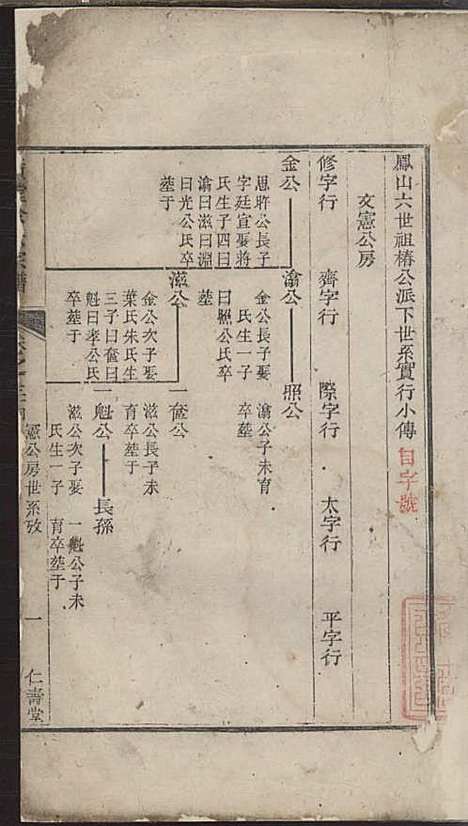 鳳山六世祖椿公派下世系實行小傳
目字號
文憲公房
修字行
齊字行
際字行
太字行
平字行
金公
滄公
照公
恩許公長子
字廷宣娶蔣
氏生子四曰
滄曰滋曰淵
曰光公氏卒
塟于
金公長子娶
氏生一子
曰照公氏卒
塟
滄公子未育
卒塟
滋公
奮公
金公次子娶
葉氏朱氏生
三子曰奮曰
魁曰孝公氏
卒塟于
滋公長子未
育卒塟于
魁公
長孫
滋公次子娶
氏生一子
魁公子未
育卒塟于
憲公房世系攷
一
仁壽堂